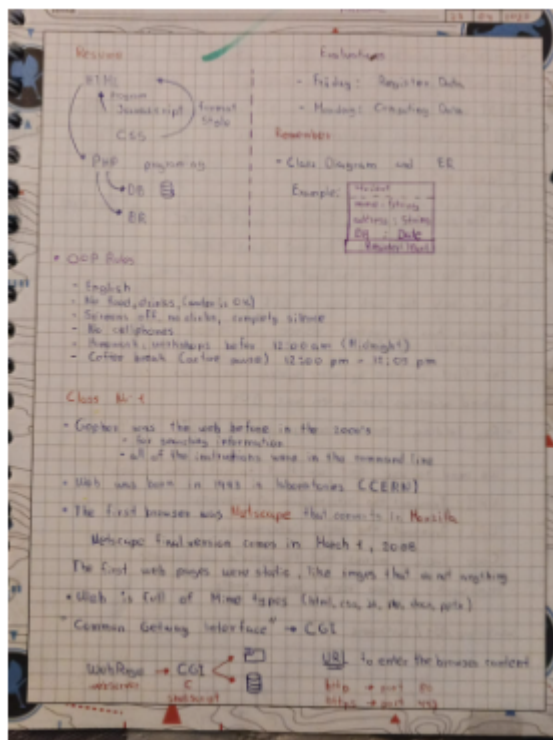 Resume
HTML
Program
Javascript
Format
Style
CSS
PHP programing
DB
ER
Evaluations
- Friday: Register Data
- Monday: Computing Data
Remember
• Class Diagram and ER
Example:
name: String
address: String
: Date
• OOP Rules
- English
- No food, drinks, (water is OK)
- Screens off, no clicks, complety silence
- No cellphones
- Homework, workshops before 12:00 am (Midnight)
- Coffee break (active pause) 12:00 pm -
Class Nº 1
- Gopher was the web before in the 2000's
• for searching information
- all of the instructions were in the command line
• Web was born in 1993 in laboratories (CERN)
• The first browser was Netscape that converts in Mozilla
Netscape final version comes in March 1, 2008
The first web pages were static, like images that do not anything
• Web is full of Mime types (html, css, js, pptx)
"Common Getwing Interface" → CGI
Web Page → CGI
webserver C
Javascript
URL to enter the browser content
http → port 80
https → port 443